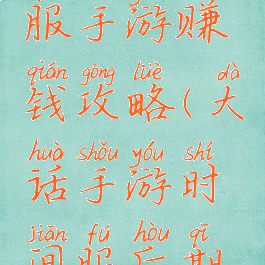 服手游赚
qián gōng lüè dà
钱攻略(大
huà shǒu yóu shí
话手游时
jiān fú hòu qī
间服后期